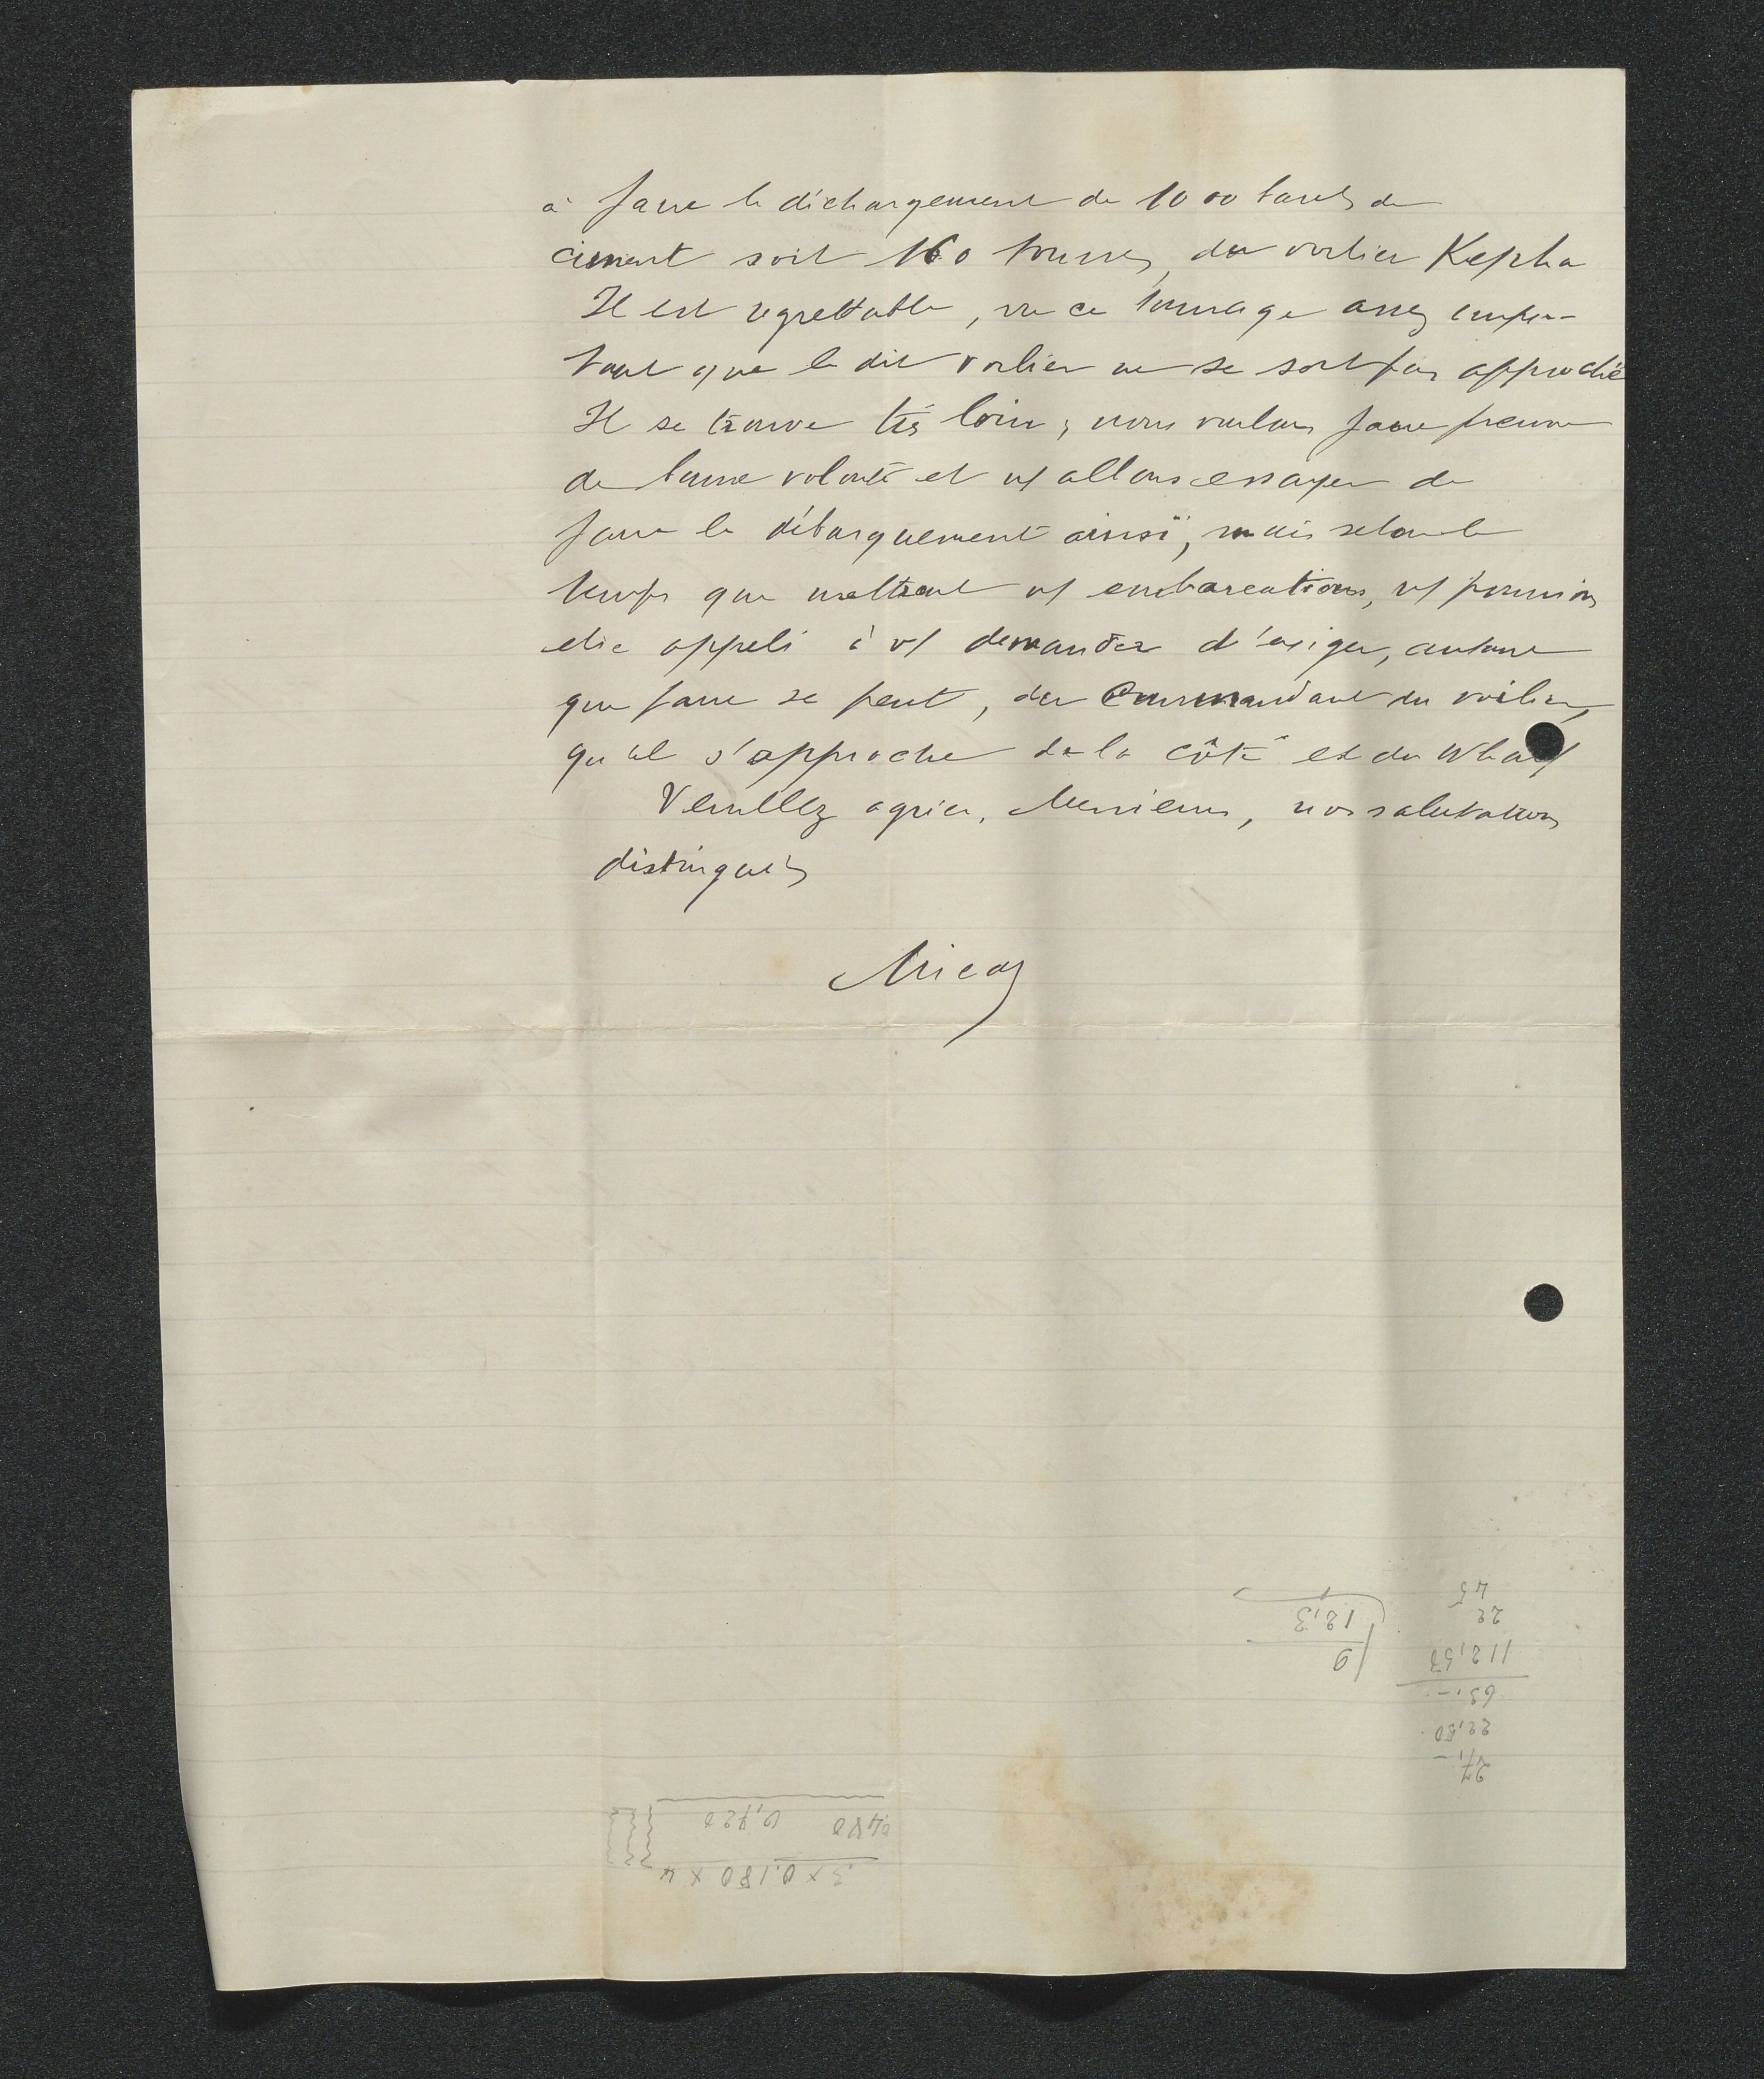 à faire le déchargement de 1000 barils de
ciment soit 160 tonnes, du voilier Kepha
Il est regrettable, vu ce tonnage assez impor-
tant que le dit voilier ne se soit pas approché
Il se trouve très loin, nous voulons faire preuve
de bonne volonté et ns/ allons essayer de
faire le débarquement ainsi, mais selon le
temps que mettront ns/ embarcations, ns/ pourrions
être appelé à vs/ demander d'exiger, autant
que faire se peut, du Commandant du voilier,
qu'il s'approche de la côte et du Wharf
Veuillez agréer, Messieurs, nos salutations
distinguées
3 x 0.180 x 4
0,720
27,-
22,50
63,-
22
45
9
12,3